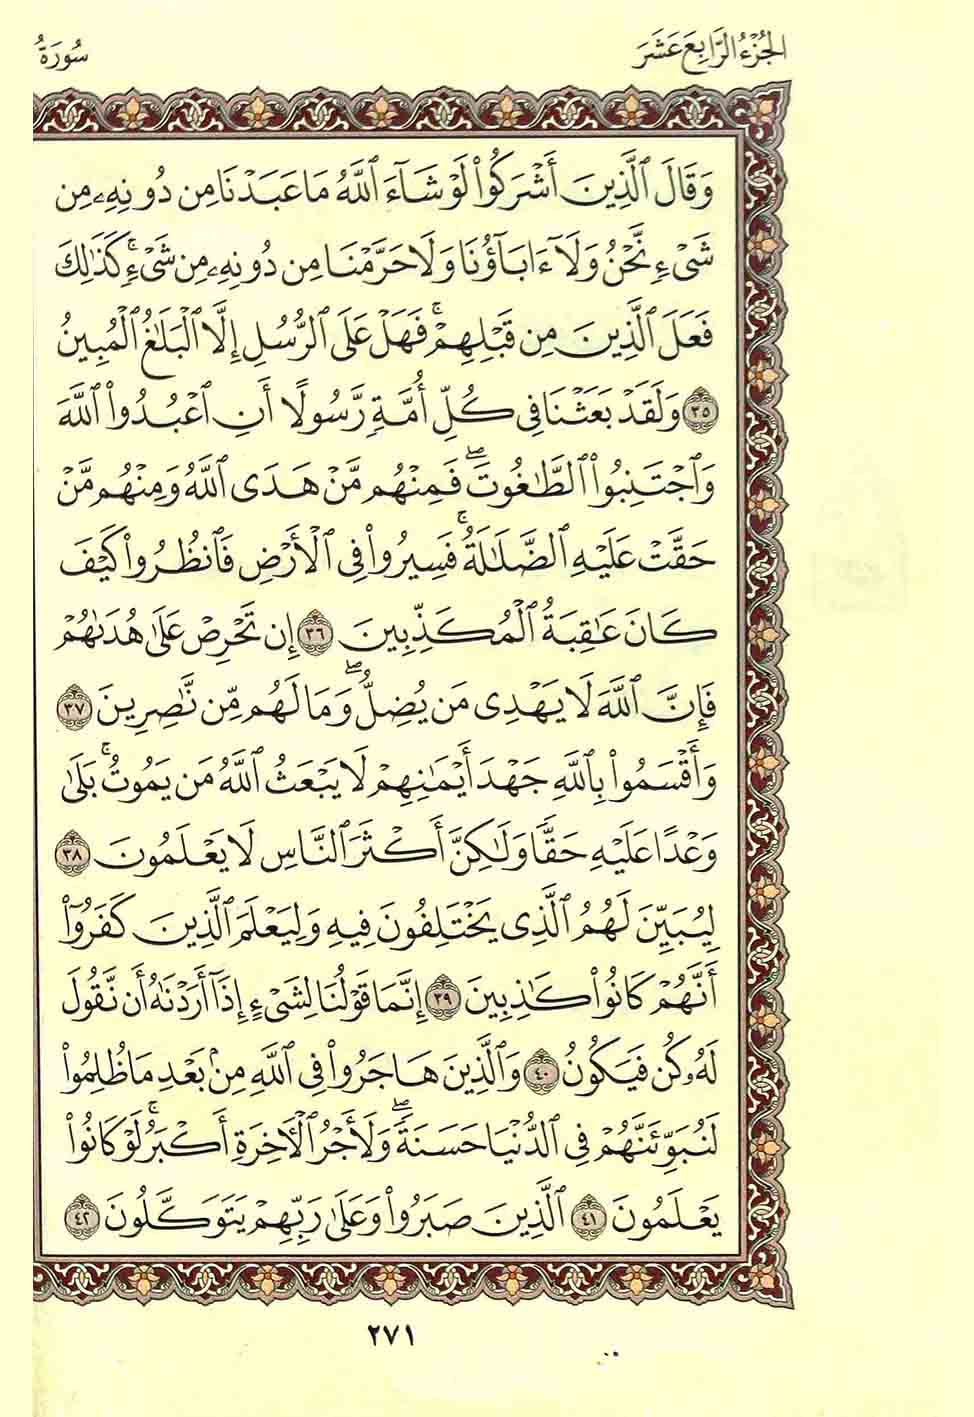 الجُزْءُ الرَّابِعَ عَشَرَ
سُورَةُ
وَقَالَ ٱلَّذِينَ أَشْرَكُوا۟ لَوْ شَآءَ ٱللَّهُ مَا عَبَدْنَا مِن دُونِهِۦ مِن
شَىْءٍ نَّحْنُ وَلَآ ءَابَآؤُنَا وَلَا حَرَّمْنَا مِن دُونِهِۦ مِن شَىْءٍ ۚ كَذَٰلِكَ
فَعَلَ ٱلَّذِينَ مِن قَبْلِهِمْ ۚ فَهَلْ عَلَى ٱلرُّسُلِ إِلَّا ٱلْبَلَٰغُ ٱلْمُبِينُ
٣٥ وَلَقَدْ بَعَثْنَا فِى كُلِّ أُمَّةٍ رَّسُولًا أَنِ ٱعْبُدُوا۟ ٱللَّهَ
وَٱجْتَنِبُوا۟ ٱلطَّٰغُوتَ ۖ فَمِنْهُم مَّنْ هَدَى ٱللَّهُ وَمِنْهُم مَّنْ
حَقَّتْ عَلَيْهِ ٱلضَّلَٰلَةُ ۚ فَسِيرُوا۟ فِى ٱلْأَرْضِ فَٱنظُرُوا۟ كَيْفَ
كَانَ عَٰقِبَةُ ٱلْمُكَذِّبِينَ ٣٦ إِن تَحْرِصْ عَلَىٰ هُدَىٰهُمْ
فَإِنَّ ٱللَّهَ لَا يَهْدِى مَن يُضِلُّ ۖ وَمَا لَهُم مِّن نَّٰصِرِينَ ٣٧
وَأَقْسَمُوا۟ بِٱللَّهِ جَهْدَ أَيْمَٰنِهِمْ لَا يَبْعَثُ ٱللَّهُ مَن يَمُوتُ ۚ بَلَىٰ
وَعْدًا عَلَيْهِ حَقًّا وَلَٰكِنَّ أَكْثَرَ ٱلنَّاسِ لَا يَعْلَمُونَ ٣٨
لِيُبَيِّنَ لَهُمُ ٱلَّذِى يَخْتَلِفُونَ فِيهِ وَلِيَعْلَمَ ٱلَّذِينَ كَفَرُوٓا۟
أَنَّهُمْ كَانُوا۟ كَٰذِبِينَ ٣٩ إِنَّمَا قَوْلُنَا لِشَىْءٍ إِذَآ أَرَدْنَٰهُ أَن نَّقُولَ
لَهُۥ كُن فَيَكُونُ ٤٠ وَٱلَّذِينَ هَاجَرُوا۟ فِى ٱللَّهِ مِنۢ بَعْدِ مَا ظُلِمُوا۟
لَنُبَوِّئَنَّهُمْ فِى ٱلدُّنْيَا حَسَنَةً ۖ وَلَأَجْرُ ٱلْـَٔاخِرَةِ أَكْبَرُ ۚ لَوْ كَانُوا۟
يَعْلَمُونَ ٤١ ٱلَّذِينَ صَبَرُوا۟ وَعَلَىٰ رَبِّهِمْ يَتَوَكَّلُونَ ٤٢
٢٧١